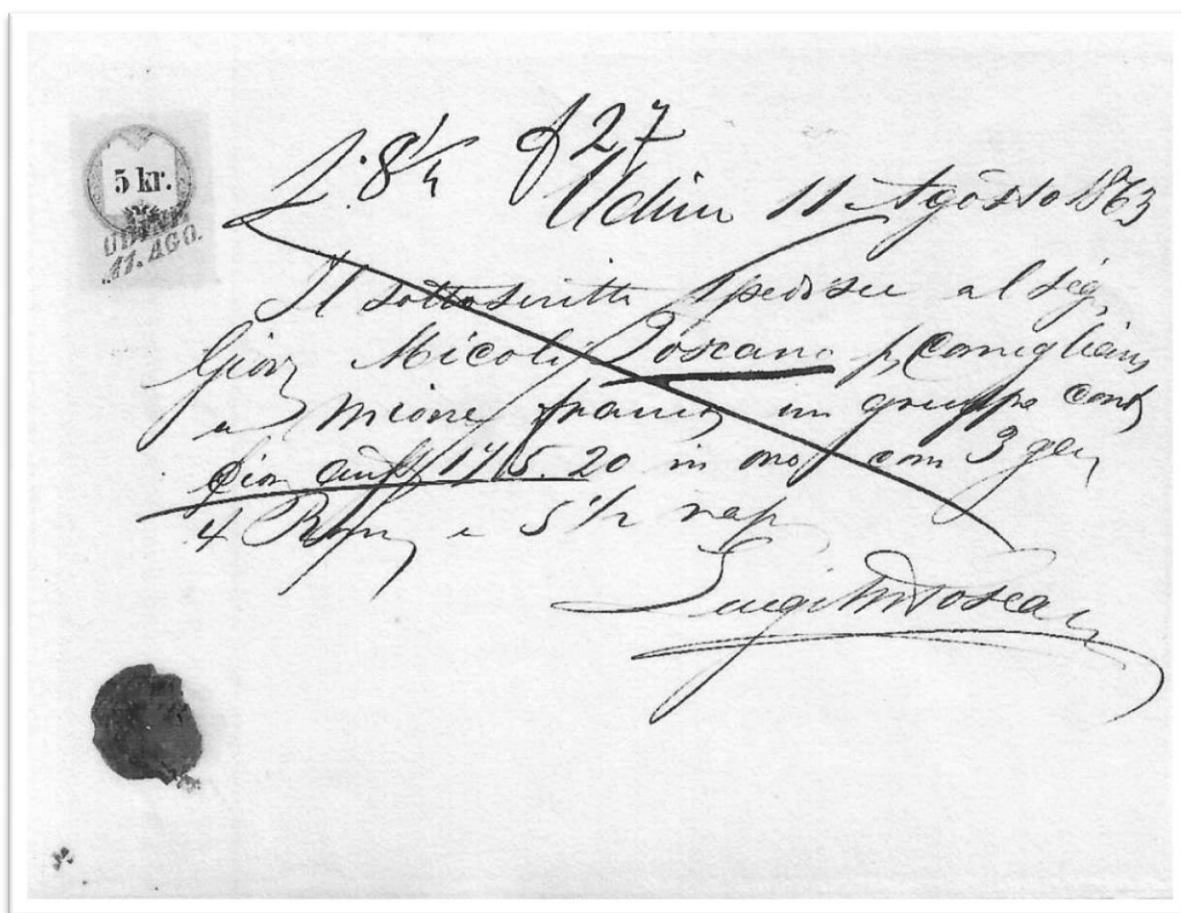 5 kr.
UDINE
11. AGO.
L. 8 1/4 f 27
Udine 11 Agosto 1863
Il sottoscritto spedisce al sig,
Giov Micoli Toscano p, Conegliano
a Mione un gruppo cont
fior 175.20 in oro con 3 gen,
4 e 5 1/2 nap
Luigi M Toscan